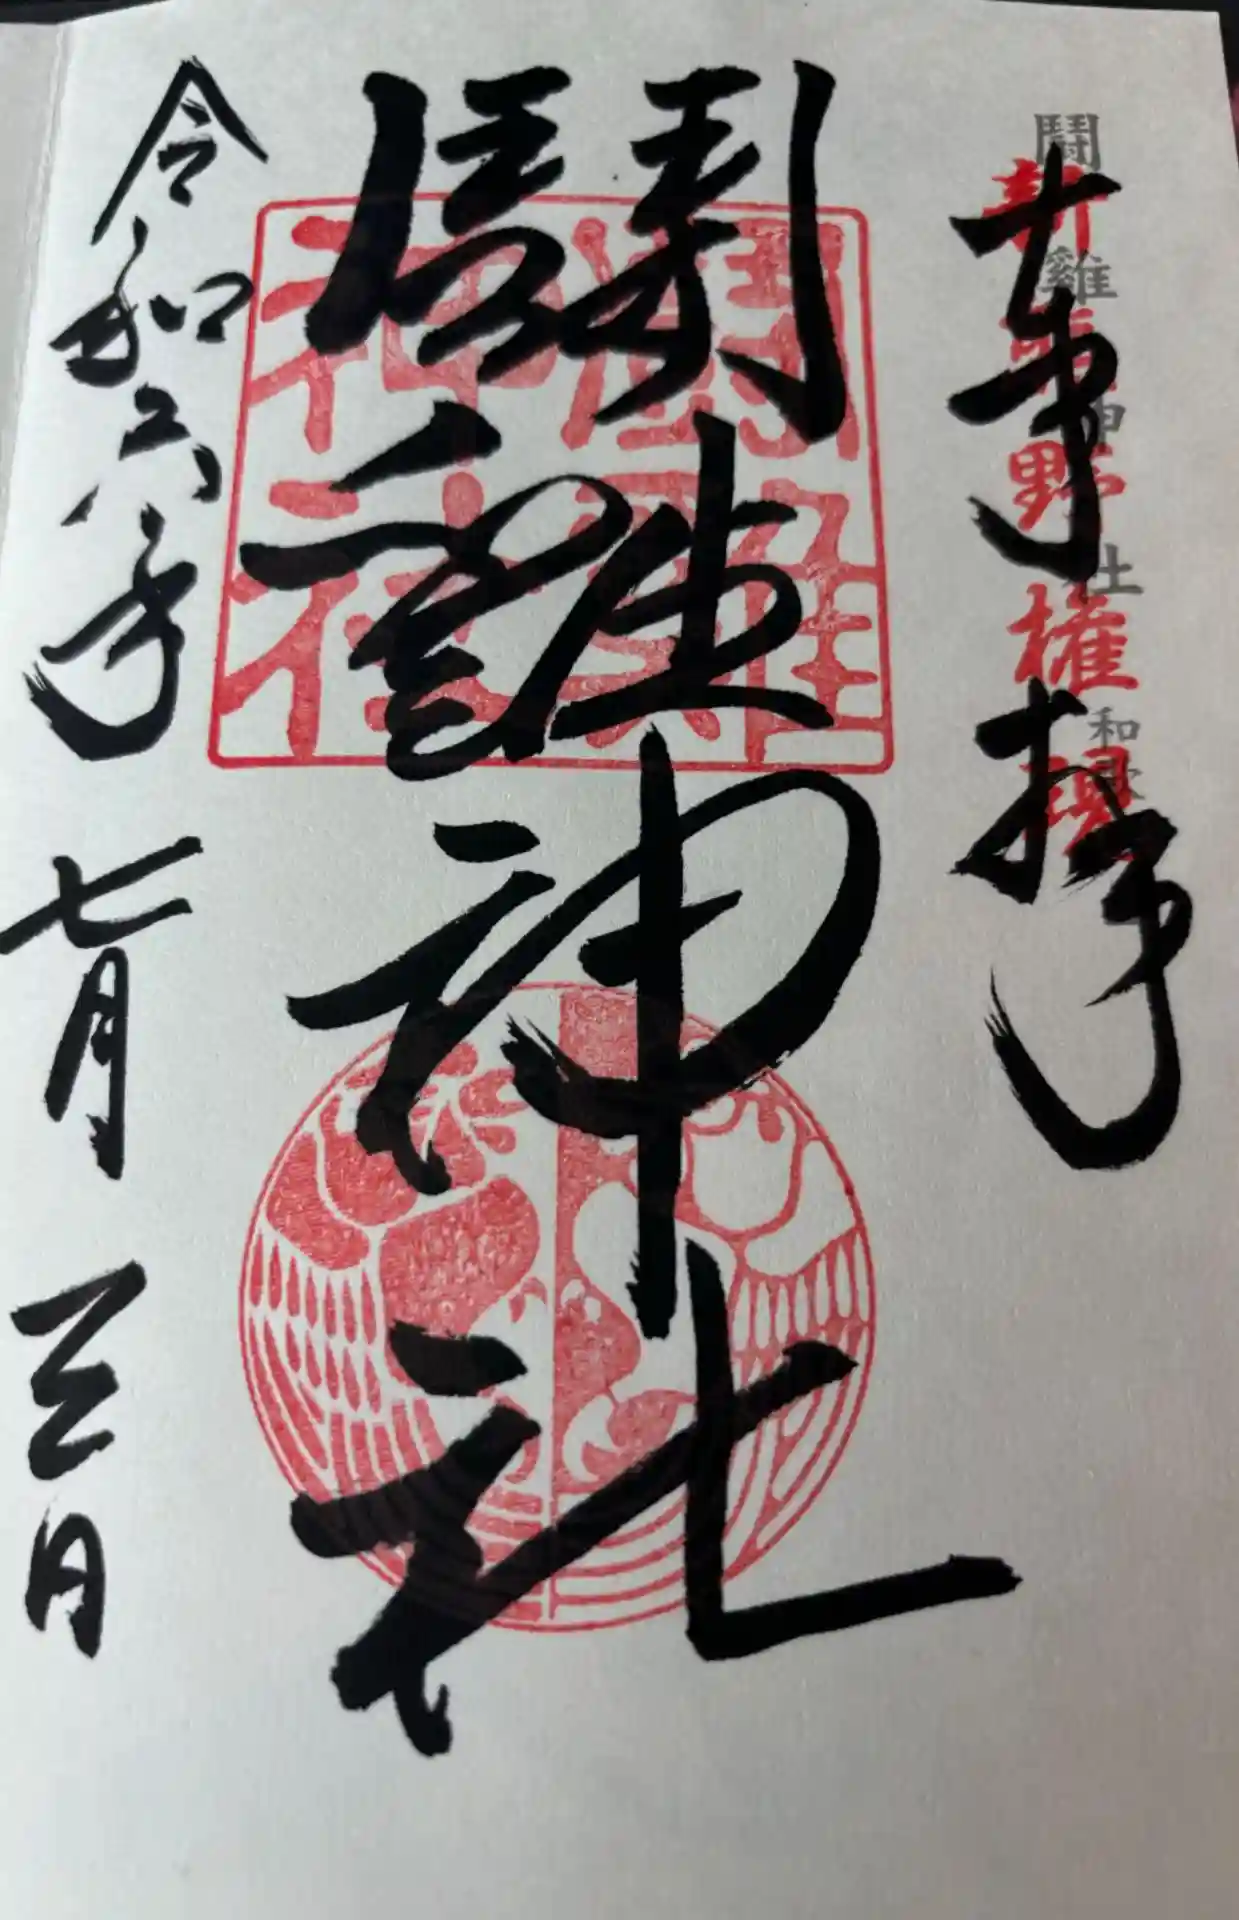 奉拝
闘雞神社
新熊野権現
闘雞神社
闘雞神社
令和六年 七月 三日